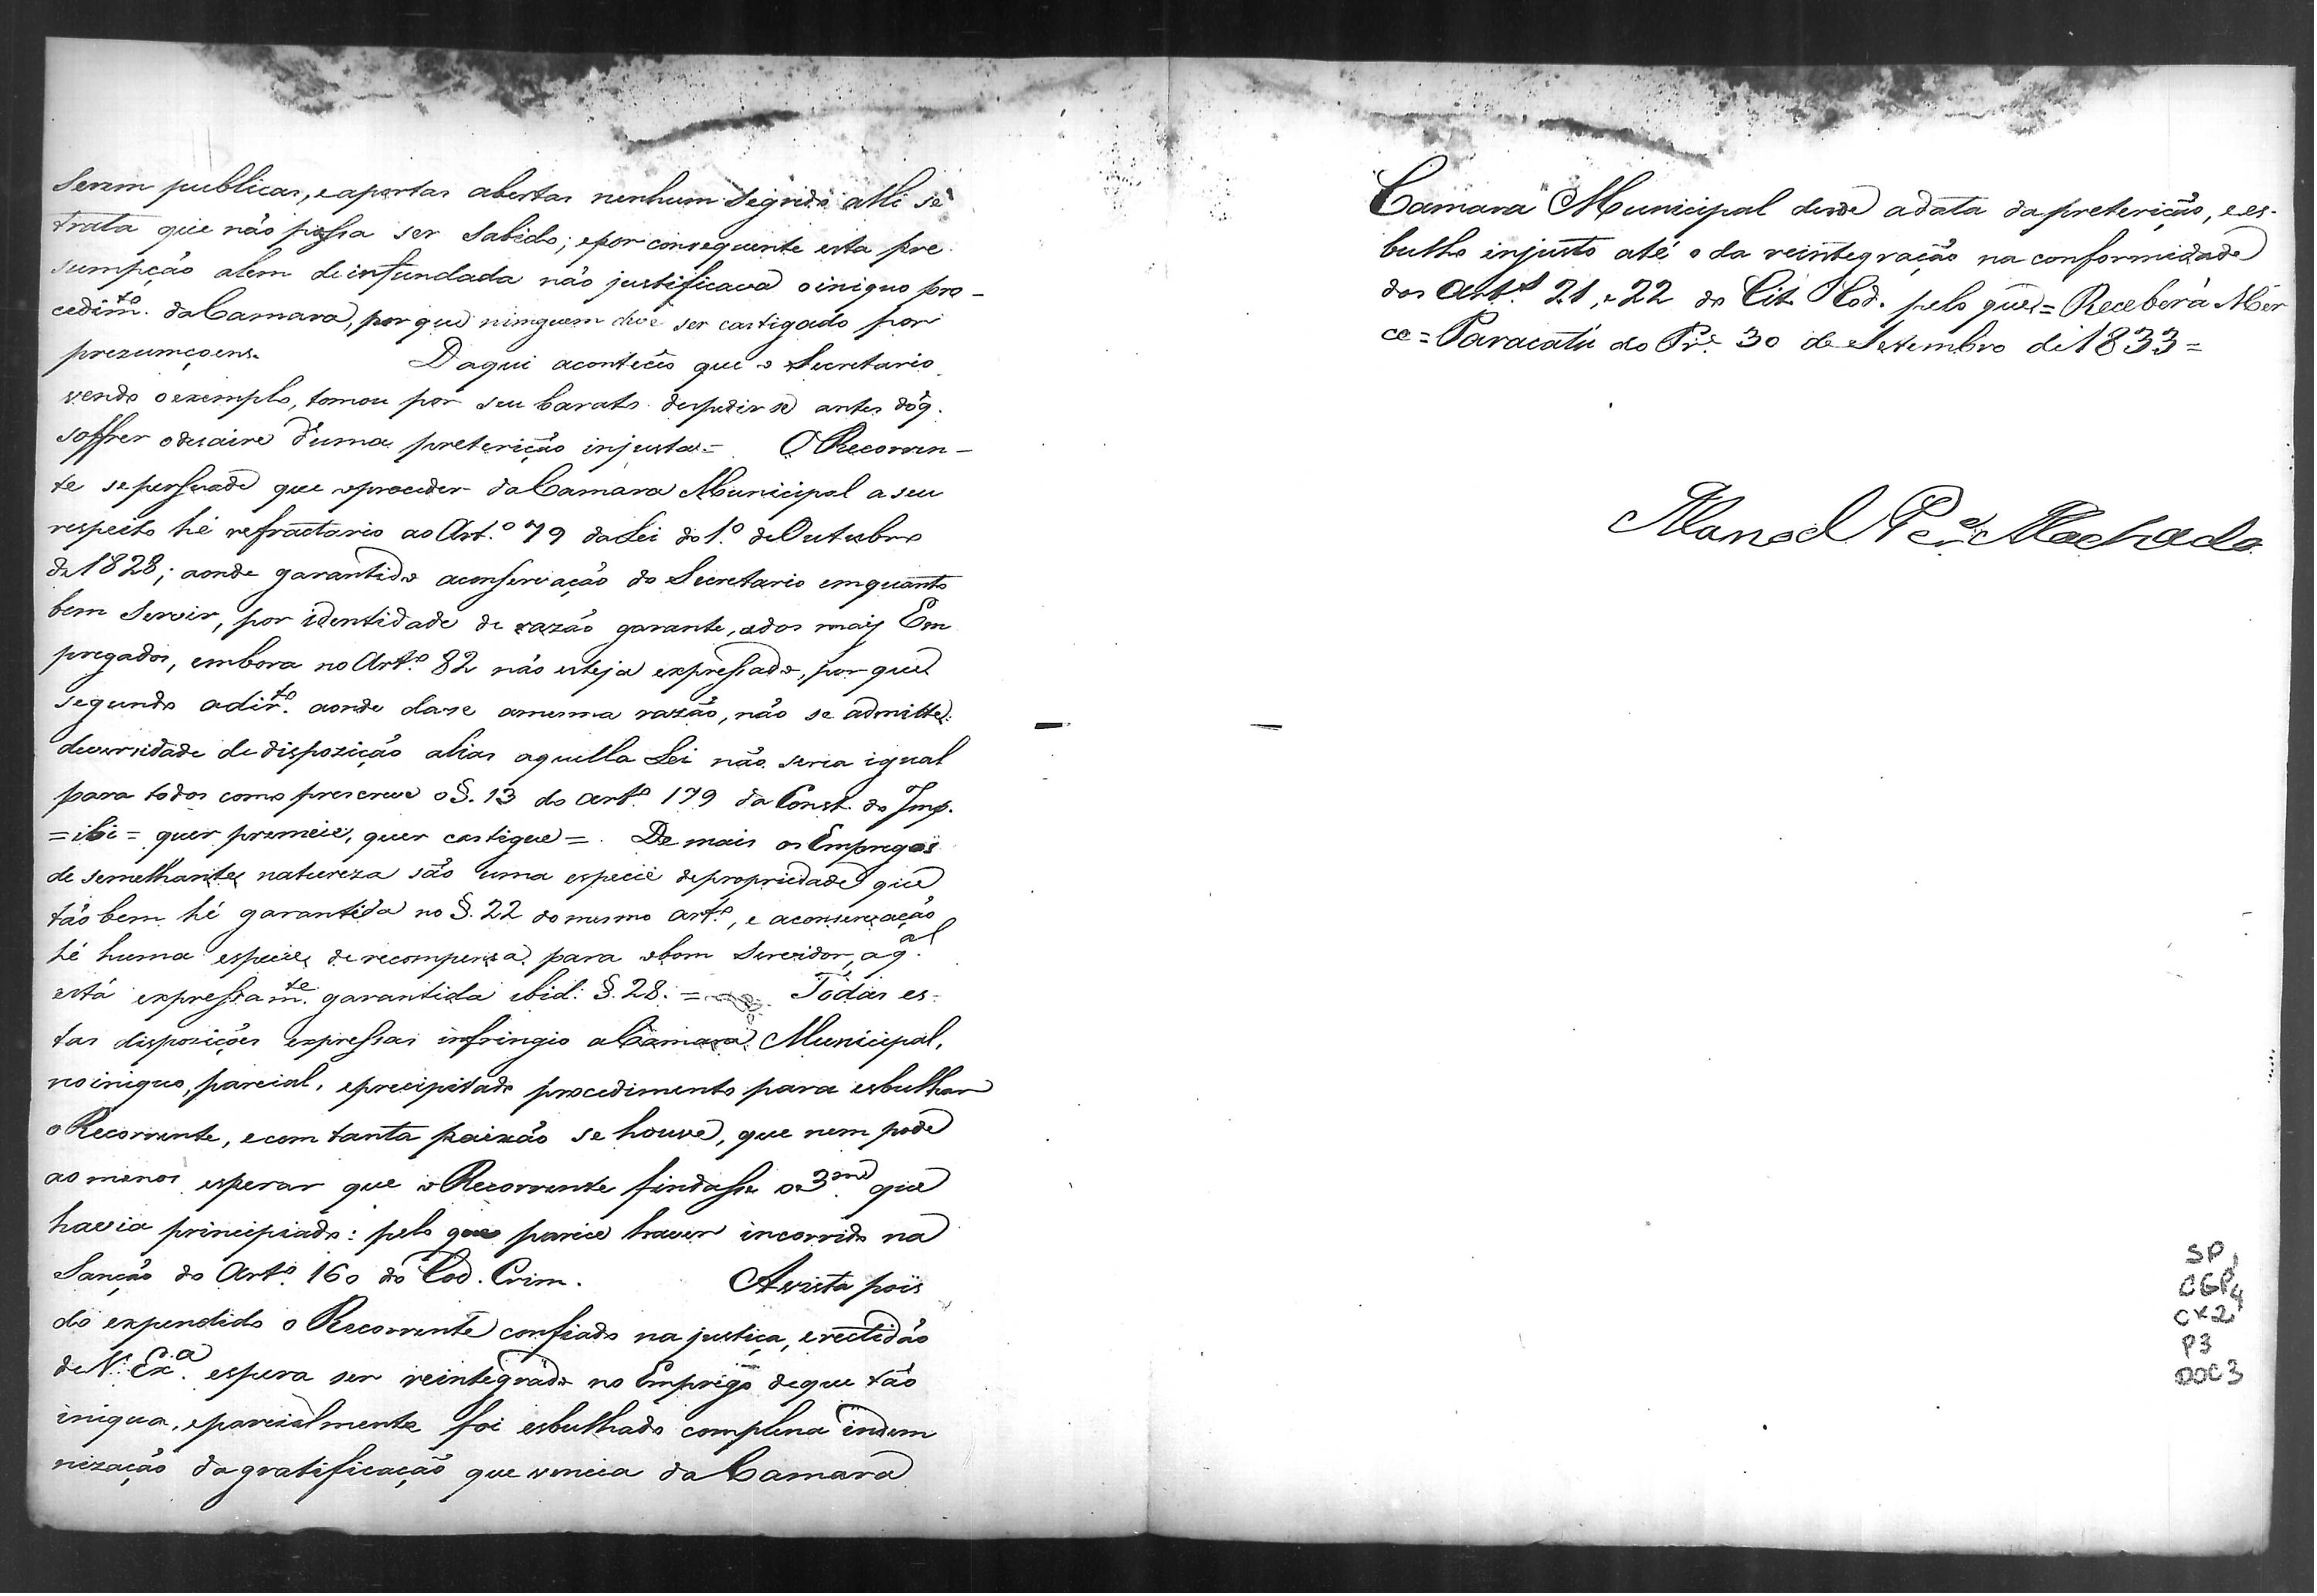 Serem publicas, e aportas abertas nenhum segredo alli se
trata que não possa ser sabido; epor conseguente esta pre
sumpção alem de infundada não justificava o iniquo pro-
cedim.to da Camara, por que ninguem deve ser castigado por
prezumçoens. Daqui aconteceo que o Secretario
vendo oexemplo, tomou por seu barato despedir se antes doq.
soffrer odesaire d'uma preterição injusta = O Recorren-
te sepersuade que oproceder da Camara Municipal a seu
respeito hé refractario ao Art.o 79 da Lei do 1.o de Outubro
de 1828; aonde garantido aconservação do Secretario emquanto
bem servir, por identidade de razão garante, ados mais Em
pregados, embora no Art.o 82 não esteja expressado, por que
segundo adir.to aonde dase amesma razão, não se admitte
deversidade de dispozição alias aquella Lei não seria igual
para todos como prescreve o §. 13 do art.o 179 da Const. do Imp.
= ibi = quer premeie, quer castigue = . De mais os Empregos
de semelhante natureza são uma especie de propriedade que
tão bem hé garantida no §. 22 do mesmo art.o, e aconservação
hé huma especie de recompensa para obom Servidor, a q.al
está expressam.te garantida ibid: §. 28. = Todas es-
tas disposições expressas infringio a Camara Municipal,
no iniquo, parcial, eprecipitado procedimento para esbulhar
o Recorrente, e com tanta paixão se houve, que nem pode
ao menos esperar que o Recorrente findasse o 3.me que
havia principiado: pelo que parice haver incorrido na
Sanção do Art.o 160 do Cod. Crim. Avista pois
do expendido o Recorrente confiado na justiça, erectidão
de V. Ex.a espera ser reintegrado no Emprego deque tão
iniqua, eparcialmente foi esbulhado complena indem
nização da gratificação que vencia da Camara
Camara Municipal desde adata dapreterição, e es-
bulho injusto até o da reintegração na conformidade
dos Art.s 21, e 22 do Cit. Cod. pelo que = Receberá Mer
ce = Paracatú do Pr.e 30 de Setembro de 1833 =
Manoel Per.a Machado
SP 1
CGP4
CX2
P3
DOC3